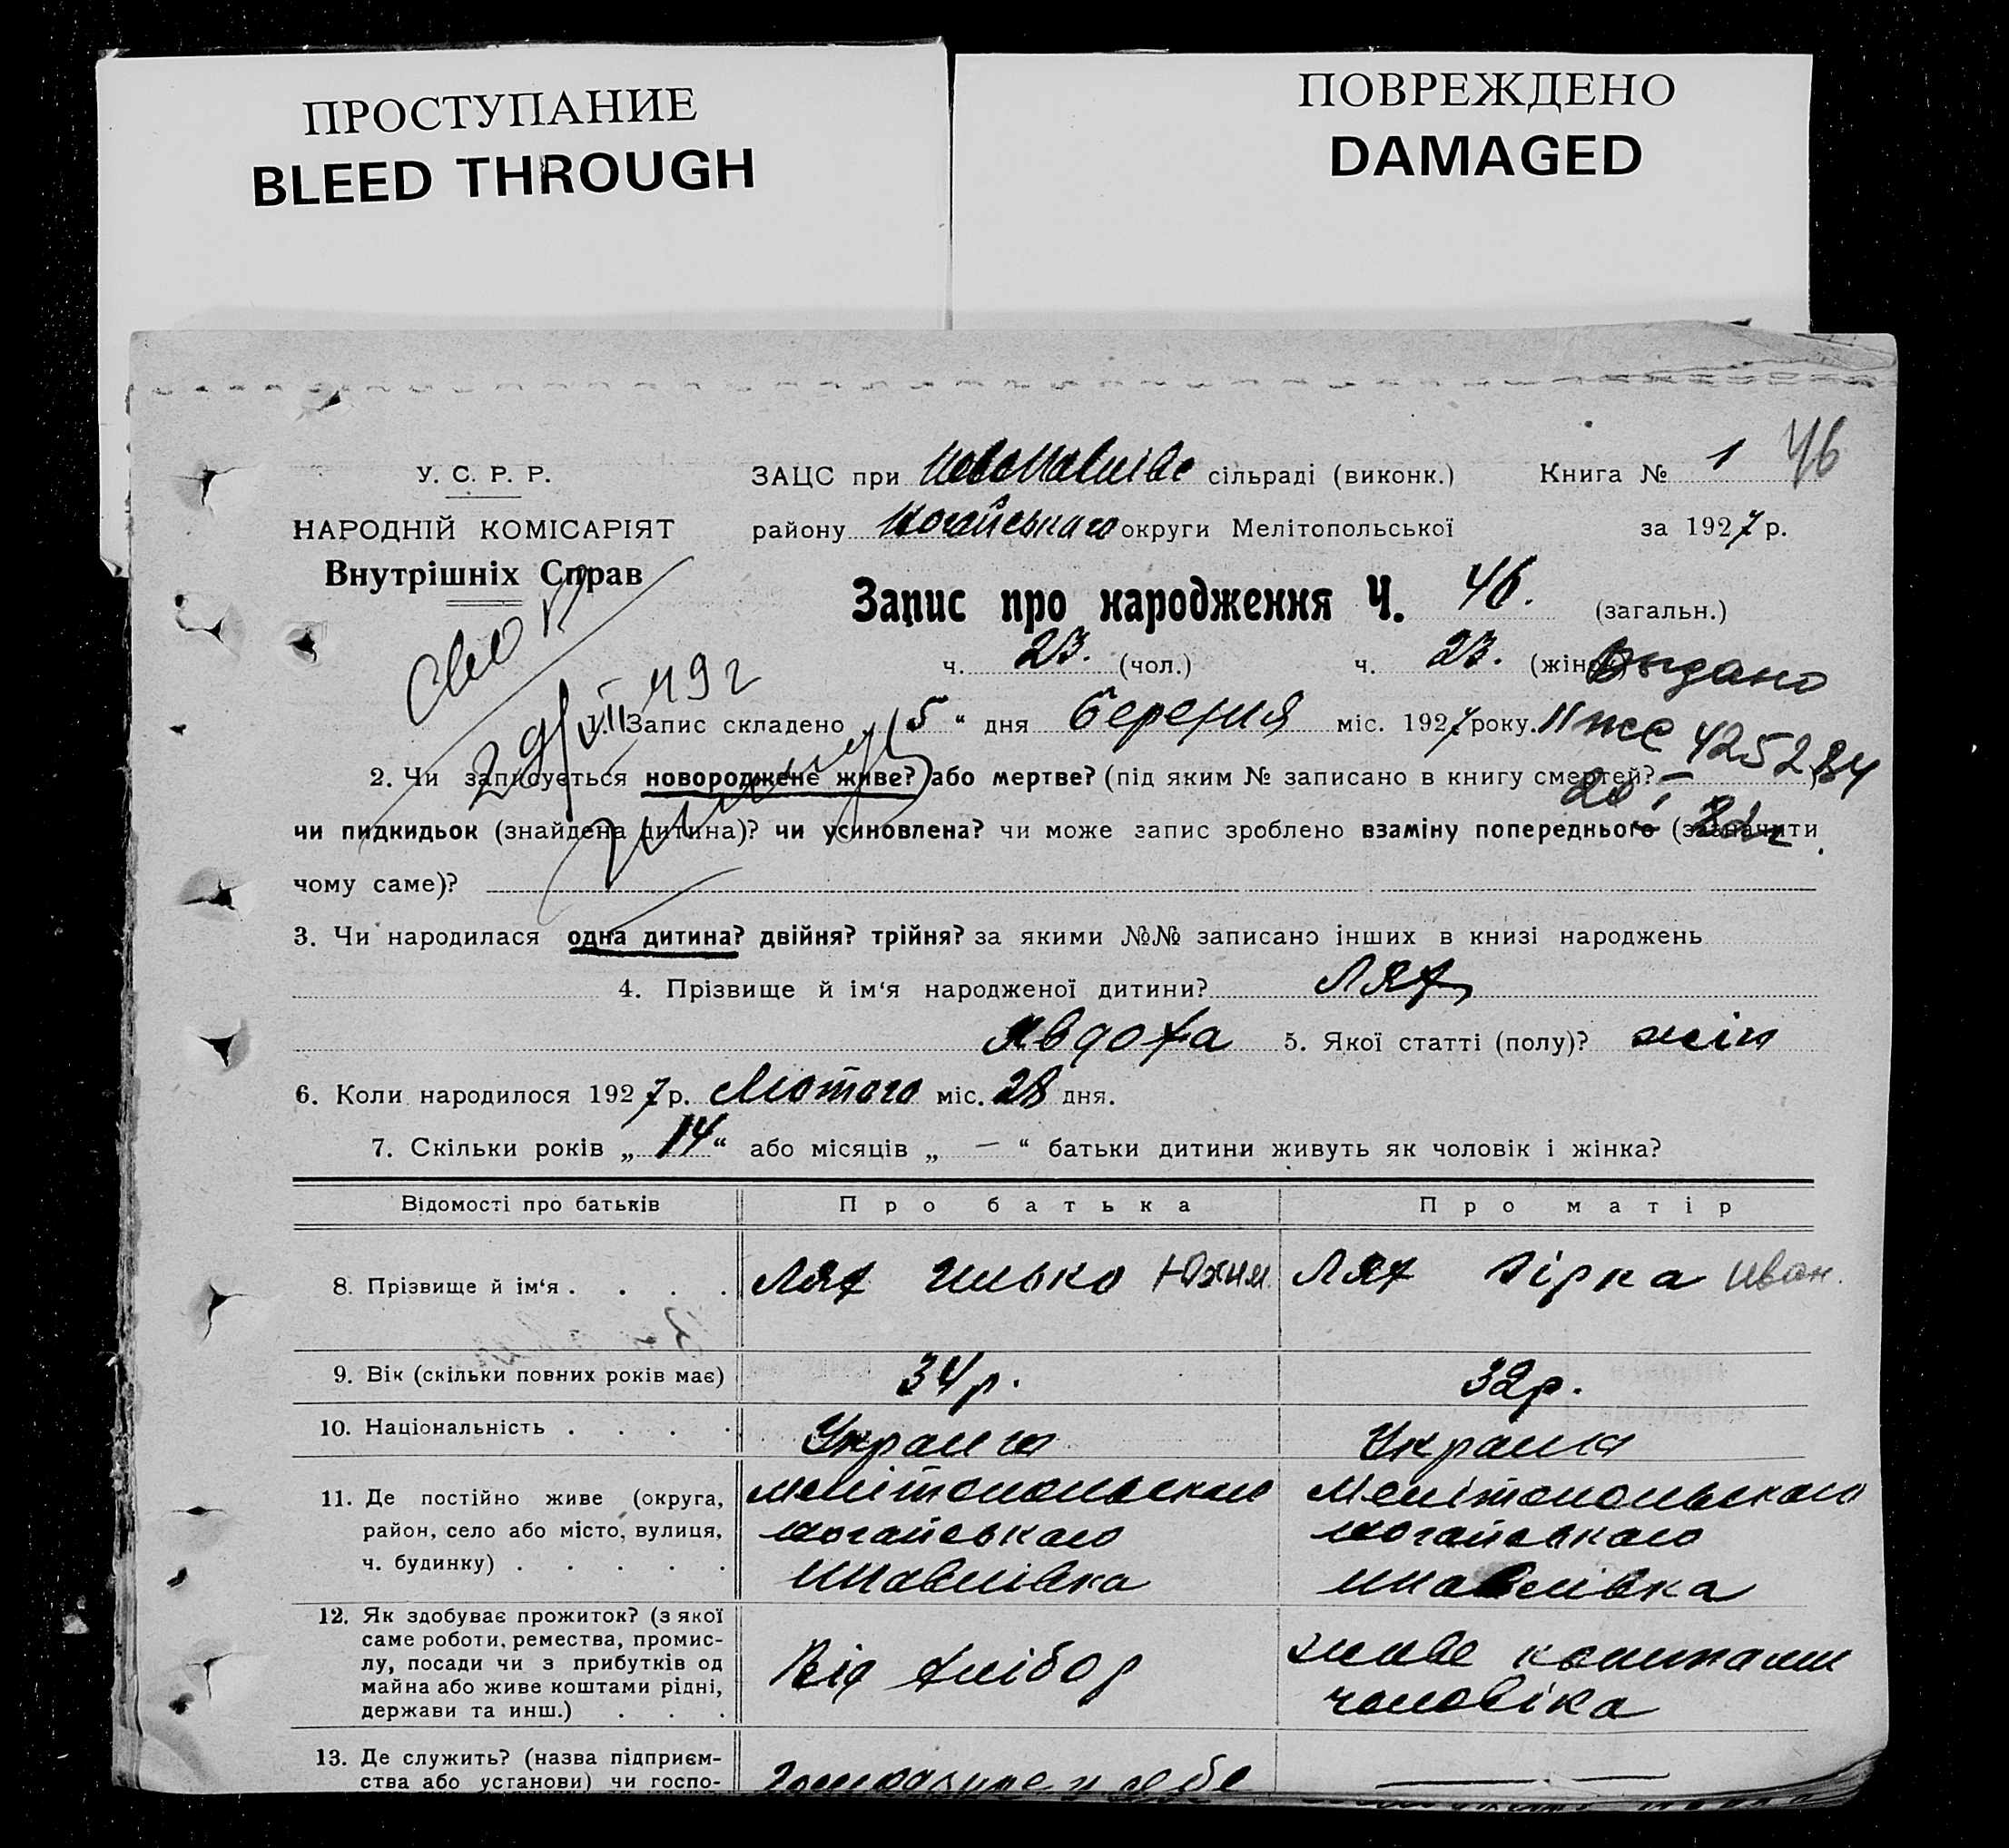 ПРОСТУПАНИЕ
BLEED THROUGH
ПОВРЕЖДЕНО
DAMAGED
46
У. С. Р. Р.
НАРОДНІЙ КОМІСАРІЯТ
Внутрішніх Справ
ЗАЦС при сільраді (виконк.) Книга № 1
району Ногайського округи Мелітопольської за 1927 р.
Запис про народження Ч. 46. (загальн.)
ч. 23. (чол.) ч. 23. (жін
Выдано
1. Запис складено 5 “ дня березня міс. 1927 року.
2. Чи записується новороджене живе? або мертве? (під яким № записано в книгу смертей? — )
чи пидкидьок (знайдена дитина)? чи усиновлена? чи може запис зроблено взаміну попереднього (зазначити
чому саме)?
3. Чи народилася одна дитина? двійня? трійня? за якими №№ записано інших в книзі народжень
4. Прізвище й ім‘я народженої дитини? Лях
Явдоха 5. Якої статті (полу)? жін
6. Коли народилося 1927 р. Лютого міс. 28 дня.
7. Скільки років „ 14 “ або місяців „ — “ батьки дитини живуть як чоловік і жінка?
Відомості про батьків Про батька Про матір
8. Прізвище й ім‘я . . . . Лях Илько Юхим. Лях Вірка Иван.
9. Вік (скільки повних років має) 34 р. 32 р.
10. Національність . . . .
11. Де постійно живе (округа, Мелітопольського Мелітопольського
район, село або місто, вулиця, Ногайського Ногайського
ч. будинку) . . . . . Нпавлівка Нпавлівка
12. Як здобуває прожиток? (з якої
саме роботи, ремества, промис-
лу, посади чи з прибутків од
майна або живе коштами рідні,
держави та инш.) . . .
Від хлібор
живе коштами
чоловіка
13. Де служить? (назва підприєм-
ства або установи) чи госпо-
у себе